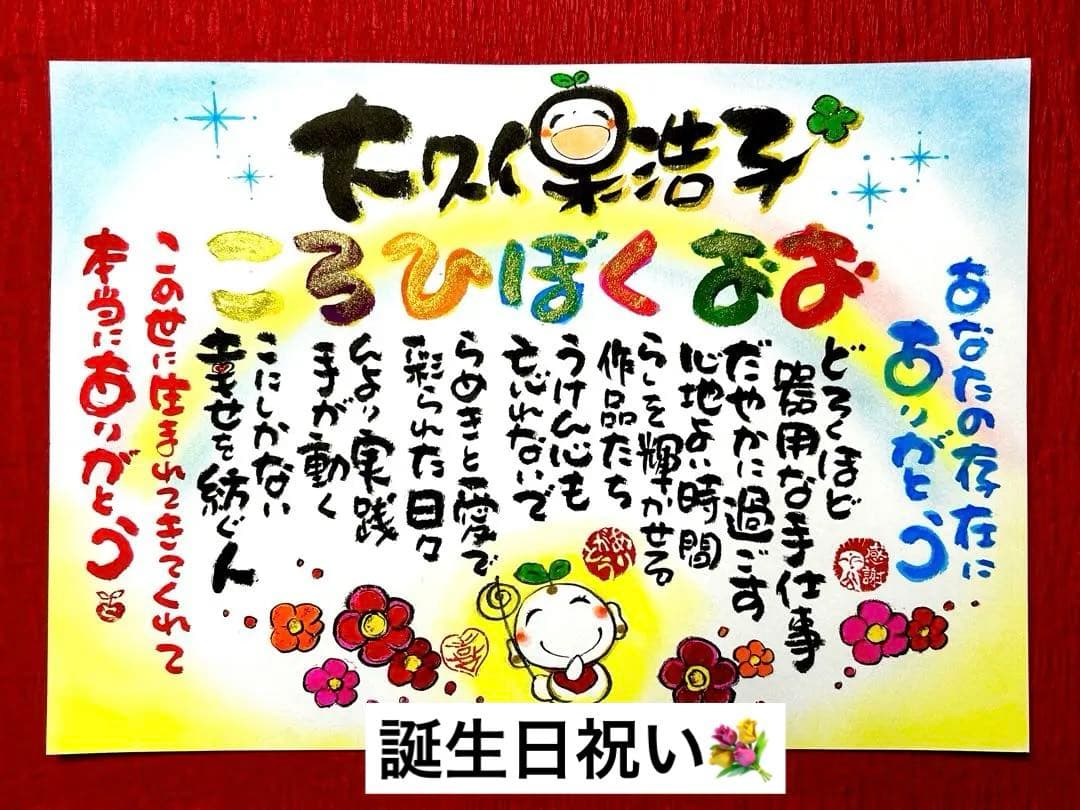 大久保浩子
あなたの存在に
ありがとう
おどろくほど
器用な手仕事
おだやかに過ごす
心地よい時間
くらしを輝かせる
作品たち
ぼうけん心も
忘れないで
ひらめきと愛で
彩られた日々
ろんより実践
手が動く
ここにしかない
幸せを紡ぐ人
この世に生まれてきてくれて
本当にありがとう
感謝
誕生日祝い💐